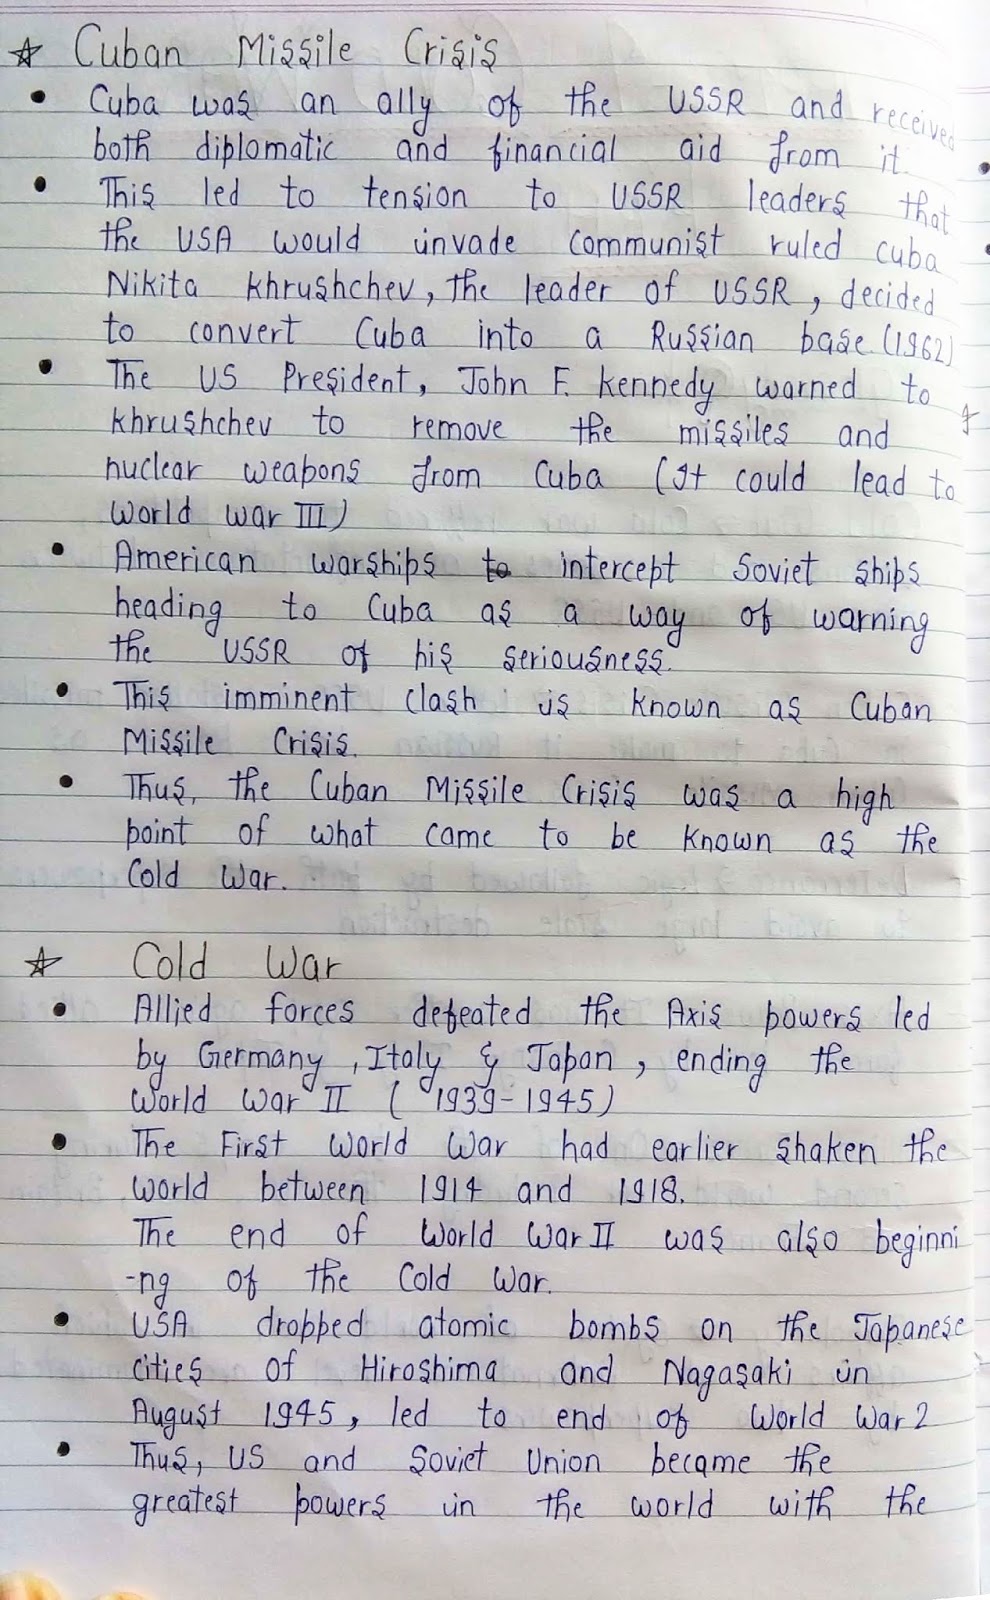 ☆ Cuban Missile Crisis
• Cuba was an ally of the USSR and received
both diplomatic and financial aid from it.
• This led to tension to USSR leaders that
the USA would invade communist ruled cuba
Nikita Khrushchev, the leader of USSR, decided
to convert Cuba into a Russian base. (1962)
• The US President, John F. Kennedy warned to
Khrushchev to remove the missiles and
nuclear weapons from Cuba (It could lead to
World War III)
• American warships to intercept Soviet ships
heading to Cuba as a way of warning
the USSR of his seriousness.
• This imminent clash is known as Cuban
Missile Crisis.
• Thus, the Cuban Missile Crisis was a high
point of what came to be known as the
Cold War.
☆ Cold War
• Allied forces defeated the Axis powers led
by Germany, Italy & Japan, ending the
World War II (1939-1945)
• The First World War had earlier shaken the
world between 1914 and 1918.
The end of World War II was also beginni
-ng of the Cold War.
• USA dropped atomic bombs on the Japanese
cities of Hiroshima and Nagasaki in
August 1945, led to end of World War 2
• Thus, US and Soviet Union became the
greatest powers in the world with the